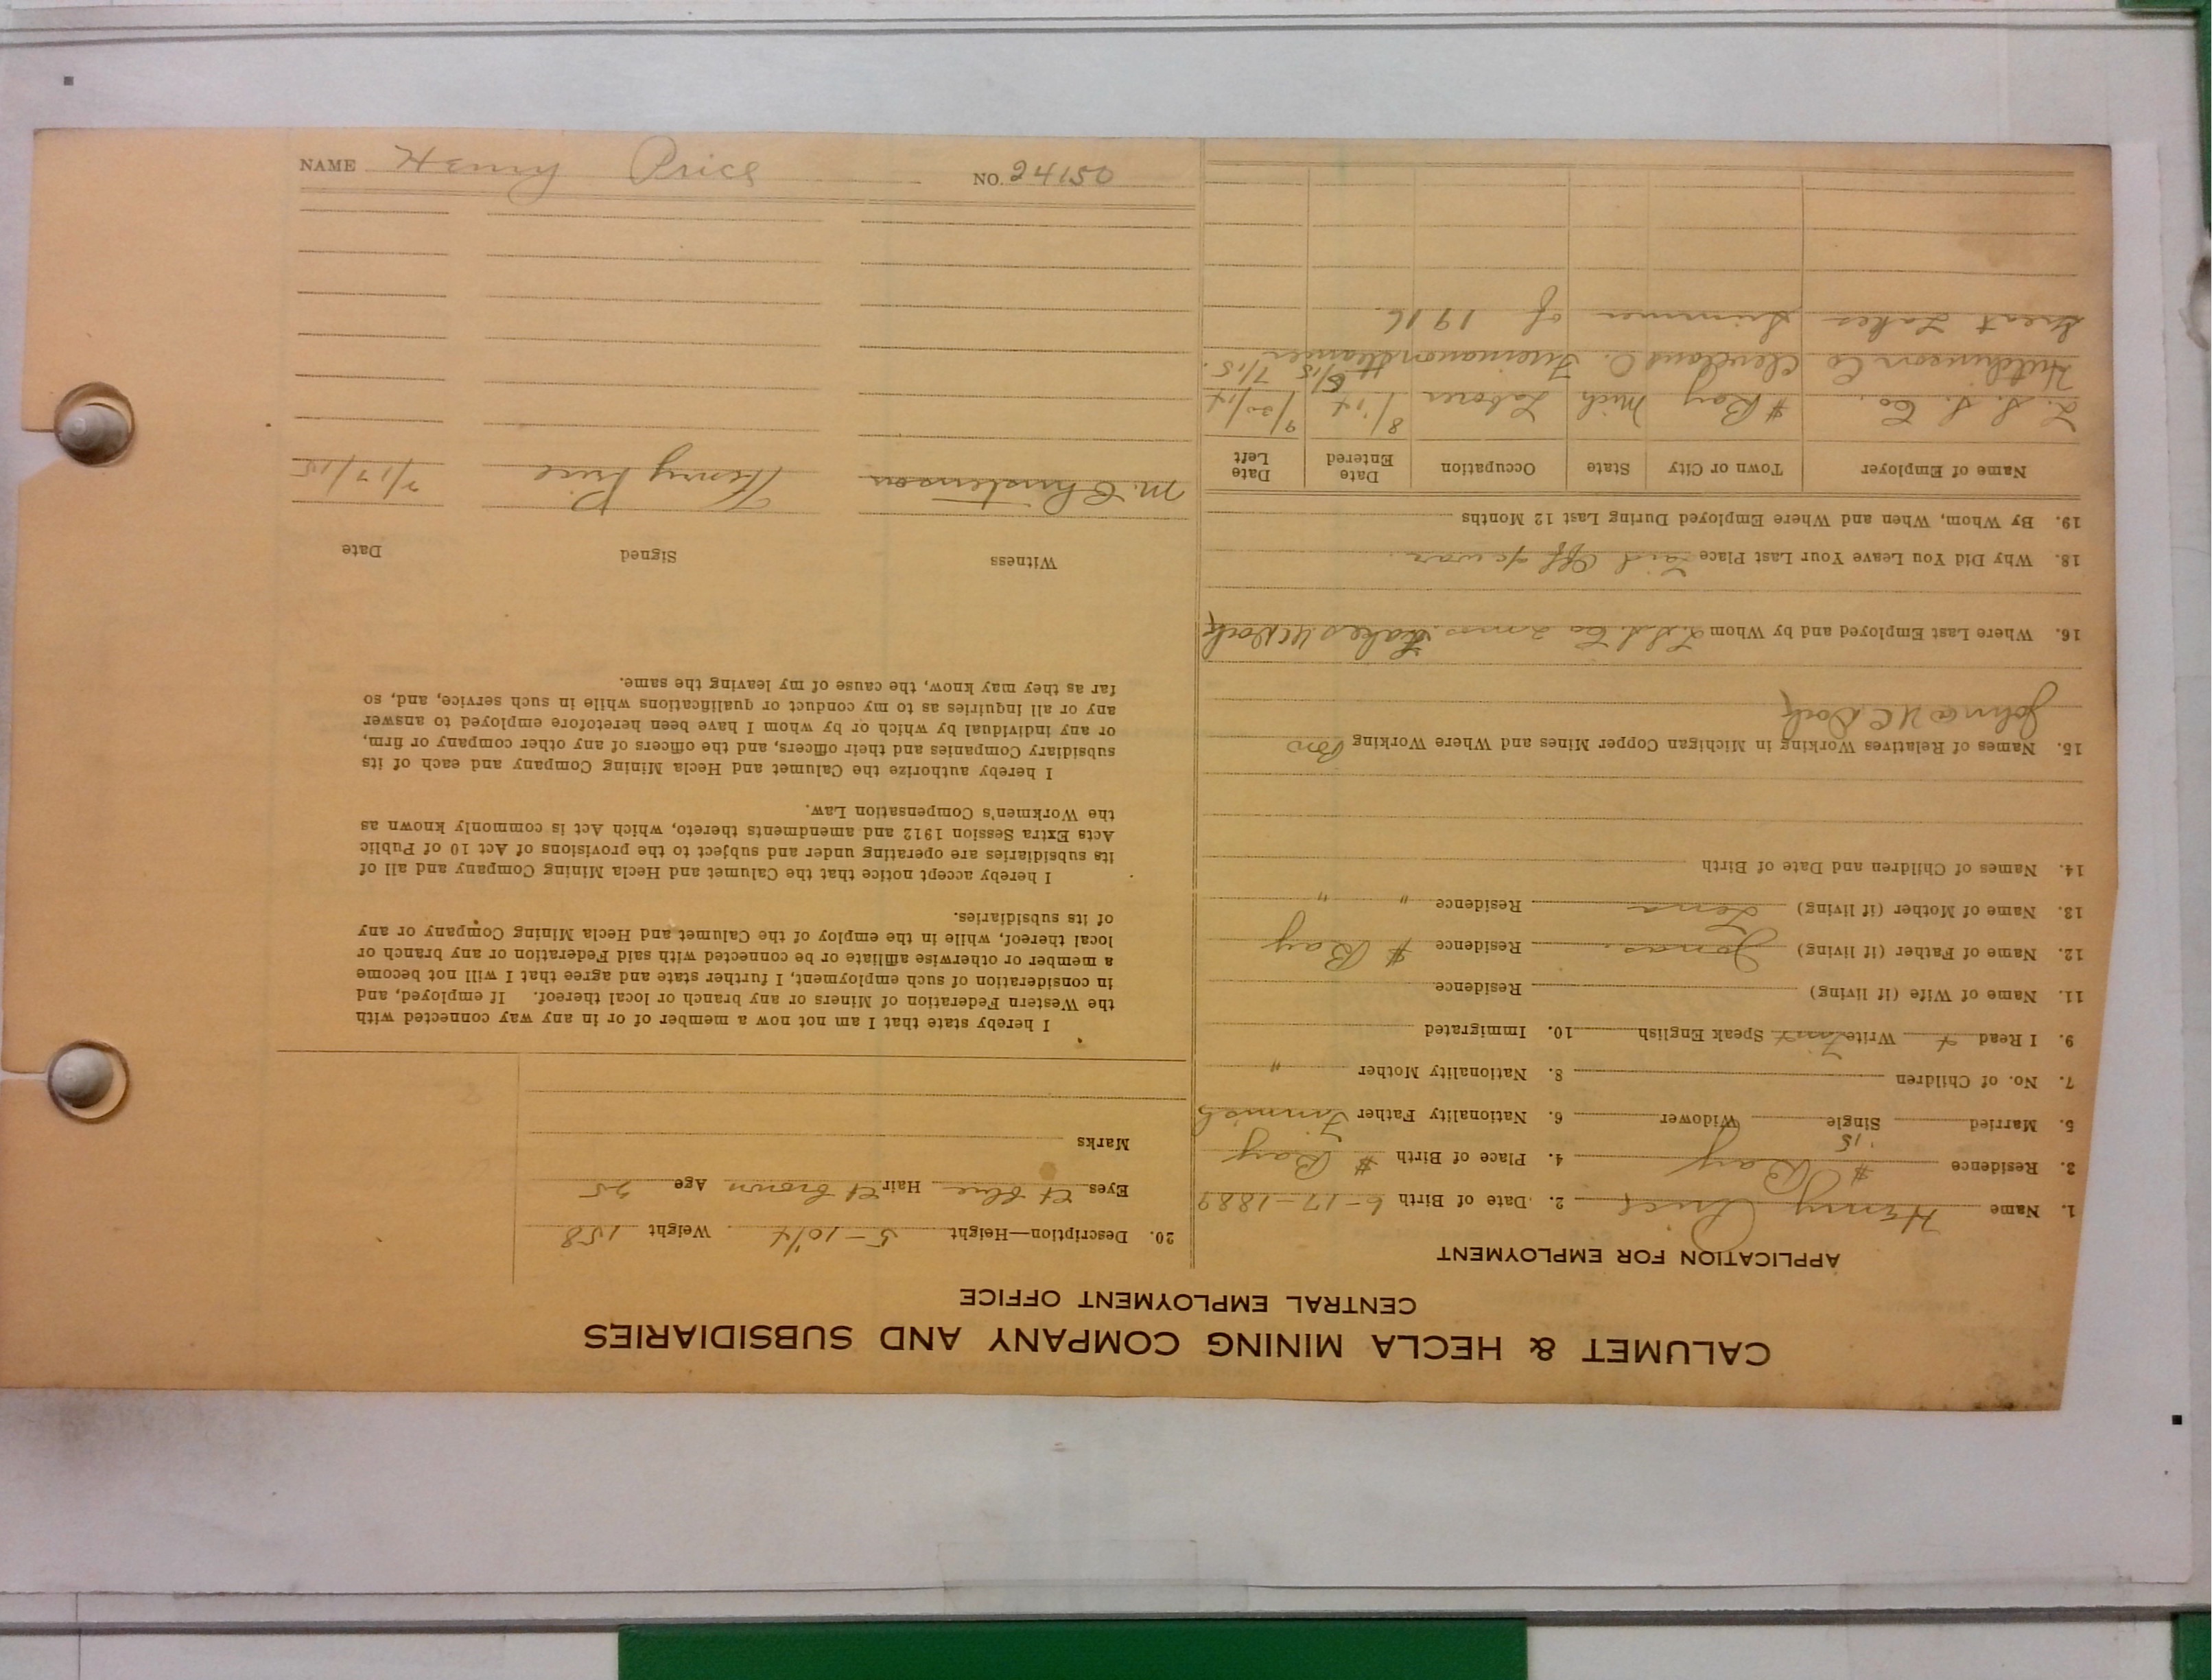 CALUMET & HECLA MINING COMPANY AND SUBSIDIARIES
CENTRAL EMPLOYMENT OFFICE
APPLICATION FOR EMPLOYMENT
1. Name Henry Price 2. Date of Birth 6-17-1889
3. Residence # Bay 4. Place of Birth # Bay
5. Married Single Widower 6. Nationality Father Finnish
7. No. of Children 8. Nationality Mother "
9. I Read Write Speak English 10. Immigrated
11. Name of Wife (if living) Residence
12. Name of Father (if living) Residence # Bay
13. Name of Mother (if living) Lena Residence " "
14. Names of Children and Date of Birth
15. Names of Relatives Working in Michigan Copper Mines and Where Working
John @ Dock
16. Where Last Employed and by Whom
18. Why Did You Leave Your Last Place Laid Off
19. By Whom, When and Where Employed During Last 12 Months
Name of Employer Town or City State Occupation Date Entered Date Left
L. S. S. Co. # Bay Mich Laborer 8/1/14 9/30/14
Hutchinson Co Cleveland O. Fireman on steamer 5/15 7/15.
Great Lakes Summer of 1916.
20. Description—Height 5-10 1/4 Weight 158
Eyes Lt blue Hair Lt brown Age 25
Marks
I hereby state that I am not now a member of or in any way connected with
the Western Federation of Miners or any branch or local thereof. If employed, and
in consideration of such employment, I further state and agree that I will not become
a member or otherwise affiliate or be connected with said Federation or any branch or
local thereof, while in the employ of the Calumet and Hecla Mining Company or any
of its subsidiaries.
I hereby accept notice that the Calumet and Hecla Mining Company and all of
its subsidiaries are operating under and subject to the provisions of Act 10 of Public
Acts Extra Session 1912 and amendments thereto, which Act is commonly known as
the Workmen's Compensation Law.
I hereby authorize the Calumet and Hecla Mining Company and each of its
subsidiary Companies and their officers, and the officers of any other company or firm,
or any individual by which or by whom I have been heretofore employed to answer
any or all inquiries as to my conduct or qualifications while in such service, and, so
far as they may know, the cause of my leaving the same.
Witness Signed Date
M. Christensen Henry Price 7/17/15
NAME Henry Price NO. 24150